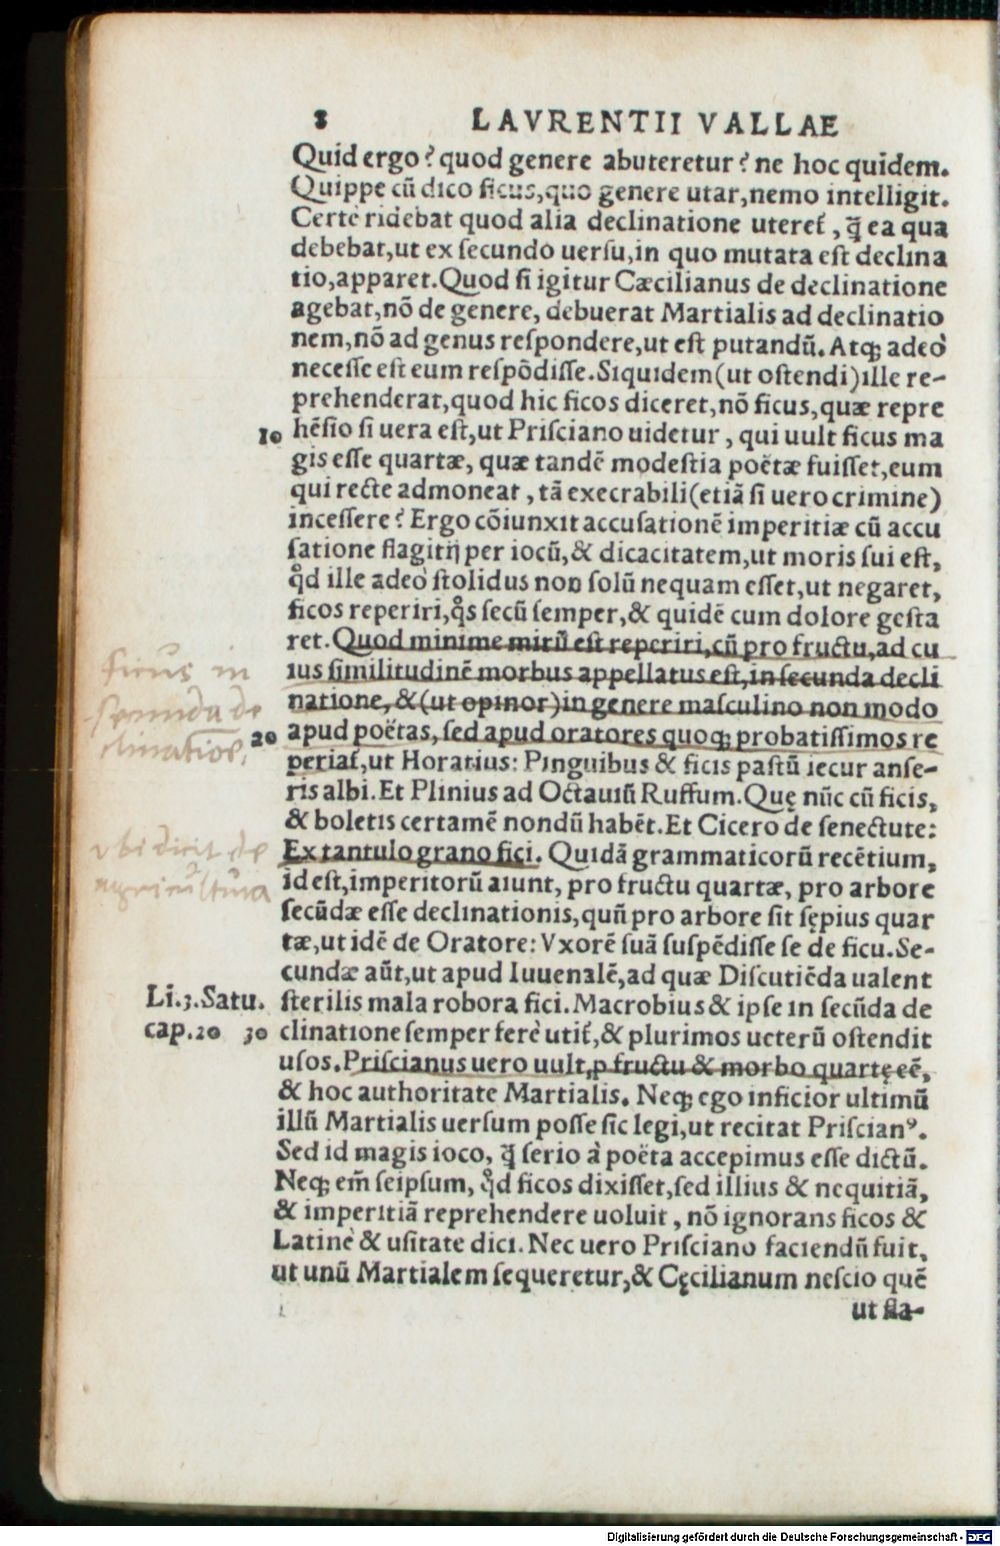 8 LAVRENTII VALLAE
Quid ergo? quod genere abuteretur? ne hoc quidem.
Quippe cũ dico ficus, quo genere utar, nemo intelligit.
Certè ridebat quod alia declinatione uteret᷑, q̃ ea qua
debebat, ut ex ſecundo uerſu, in quo mutata eſt declina
tio, apparet. Quod ſi igitur Cæcilianus de declinatione
agebat, nõ de genere, debuerat Martialis ad declinatio
nem, nõ ad genus reſpondere, ut eſt putandũ. Atq; adeò
neceſſe eſt eum reſpõdiſſe. Siquidem (ut oſtendi) ille re-
prehenderat, quod hic ficos diceret, nõ ficus, quæ repre
10 hẽſio ſi uera eſt, ut Priſciano uidetur, qui uult ficus ma
gis eſſe quartæ, quæ tandẽ modeſtia poëtæ fuiſſet, eum
qui recte admoneat, tã execrabili (etiã ſi uero crimine)
inceſſere? Ergo cõiunxit accuſationẽ imperitiæ cũ accu
ſatione flagitij per iocũ, & dicacitatem, ut moris ſui eſt,
qd̓ ille adeò ſtolidus non ſolũ nequam eſſet, ut negaret,
ficos reperiri, qͦs ſecũ ſemper, & quidẽ cum dolore geſta
ret. Quod minime mirũ eſt reperiri, cũ pro fructu, ad cu
ius ſimilitudinẽ morbus appellatus eſt, in ſecunda decli
natione, & (ut opinor) in genere maſculino non modo
20 apud poëtas, ſed apud oratores quoq; probatiſſimos re
periat᷑, ut Horatius: Pinguibus & ficis paſtũ iecur anſe-
ris albi. Et Plinius ad Octauiũ Ruffum. Quę nũc cũ ficis,
& boletis certamẽ nondũ habẽt. Et Cicero de ſenectute:
Ex tantulo grano fici. Quidã grammaticorũ recẽtium,
id eſt, imperitorũ aiunt, pro fructu quartæ, pro arbore
ſecũdæ eſſe declinationis, quũ pro arbore ſit ſępius quar
tæ, ut idẽ de Oratore: Vxorẽ ſuã ſuſpẽdiſſe ſe de ficu. Se-
cundæ aũt, ut apud Iuuenalẽ, ad quæ Diſcutiẽda ualent
ſterilis mala robora fici. Macrobius & ipſe in ſecũda de
30 clinatione ſemper ferè utit᷑, & plurimos ueterũ oſtendit
uſos. Priſcianus uero uult, ꝓ fructu & morbo quartę eẽ,
& hoc authoritate Martialis. Neq; ego inficior ultimũ
illũ Martialis uerſum poſſe ſic legi, ut recitat Priſcianꝰ.
Sed id magis ioco, q̃ ſerio à poëta accepimus eſſe dictũ.
Neq; em̃ ſeipſum, qd̓ ficos dixiſſet, ſed illius & nequitiã,
& imperitiã reprehendere uoluit, nõ ignorans ficos &
Latinè & uſitate dici. Nec uero Priſciano faciendũ fuit,
ut unũ Martialem ſequeretur, & Cęcilianum neſcio quẽ
ut fla-
ficus in
secunda de
clinatioe.
vbi dicit de
agricultura
Li.3.Satu.
cap.20
Digitalisierung gefördert durch die Deutsche Forschungsgemeinschaft - DFG